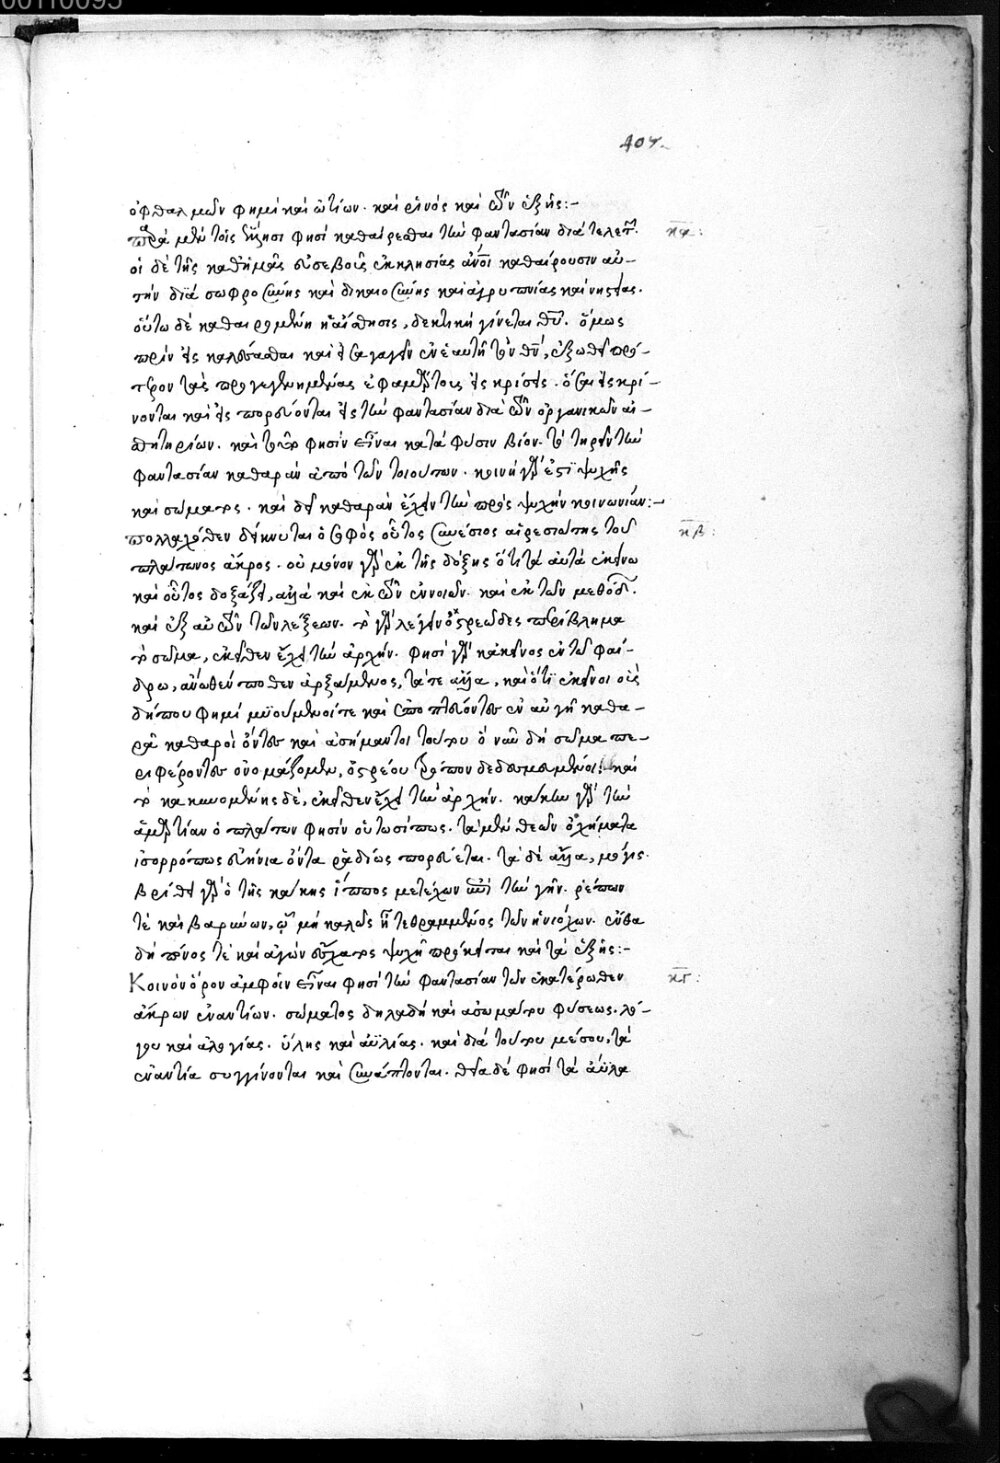 00110095
407
ὀφθαλμῶν φημὶ καὶ ὠτίων. καὶ ῥινὸς καὶ τῶν ἑξῆς:-
παρὰ μὲν τοῖς ἕλλησι φησὶ καθαίρεσθαι τὴν φαντασίαν διὰ τελετ. κα:
οἱ δὲ τῆς καθἡμᾶς εὐσεβοῦς ἐκκλησίας ἄνοι καθαίρουσιν αὐ-
τὴν διὰ σωφροσύνης καὶ δικαιοσύνης καὶ ἀγρυπνίας καὶ νηστείας.
οὕτω δὲ καθαιρομένη ἡ αἴσθησις, δεκτικὴ γίνεται θυ. ὅμως
πρὶν εἰσκαλέσασθαι καὶ εἰσαγαγεῖν ἐν ἑαυτῇ τὸν θν, ἔξωθεν πρό-
τερον τὰς προγεγενημένας ἐφαμέν τους εἰσκρίσεις. ὅσαι εἰσκρί-
νονται καὶ εἰσπορεύονται εἰς τὴν φαντασίαν διὰ τῶν ὀργανικῶν αἰ-
σθητηρίων. καὶ τοῦτο φησὶν εἶναι κατὰ φύσιν βίον. τὸ τηρεῖν τὴν
φαντασίαν καθαρὰν ἀπὸ τῶν τοιούτων. κοινὴ γὰρ ἐστὶ ψυχῆς
καὶ σώματος. καὶ δεῖ καθαρὰν ἔχειν τὴν πρὸς ψυχὴν κοινωνίαν:-
πολλαχόθεν δείκνυται ὁ σοφὸς οὗτος συνέσιος αἱρεσιώτης τοῦ κβ:
πλάτωνος ἄκρος. οὐ μόνον γὰρ ἐκ τῆς δόξης ὅτι τὰ αὐτὰ ἐκείνω
καὶ οὗτος δοξάζει, ἀλλὰ καὶ ἐκ τῶν ἐννοιῶν. καὶ ἐκ τῶν μεθόδ.
καὶ ἐξ αὐτῶν τῶν λέξεων. τὸ γὰρ λέγειν ὀστρεῶδες περίβλημα
τὸ σῶμα, ἐκεῖθεν ἔχει τὴν ἀρχήν. φησὶ γὰρ κἀκεῖνος ἐν τῷ φαί-
δρω, ἄνωθέν ποθεν ἀρξάμενος, τάτε ἄλλα, καὶ ὅτι ἐκεῖνοι οἷς
δήπου φημὶ μυούμενοί τε καὶ ἐποπτεύοντες ἐν αὐγῇ καθα-
ρᾷ καθαροὶ ὄντες καὶ ἀσήμαντοι τούτου ὃ νῦν δὴ σῶμα πε-
ριφέροντες ὀνομάζομεν, ὀστρέου τρόπον δεδεσμευμένοι. καὶ
τὸ κακυνομένης δὲ, ἐκεῖθεν ἔχει τὴν ἀρχήν. κάκην γὰρ τὴν
ἁμαρτίαν ὁ πλάτων φησὶν οὑτωσίπως. τὰ μὲν θεῶν ὀχήματα
ἰσορρόπως εὐήνια ὄντα ῥαδίως πορεύεται. τὰ δὲ ἄλλα, μόγις.
βρίθει γὰρ ὁ τῆς κάκης ἵππος μετέχων ἐπὶ τὴν γῆν. ῥέπων
τὲ καὶ βαρύνων, ᾧ μὴ καλῶς ἦ τεθραμμένος τῶν ἡνιόχων. ἔνθα
δὴ πόνος τὲ καὶ ἀγὼν ἔσχατος ψυχῇ πρόκειται καὶ τὰ ἑξῆς:-
Κοινὸν ὅρον ἀμφοῖν εἶναι φησὶ τὴν φαντασίαν τῶν ἑκατέρωθεν κγ:
ἄκρων ἐναντίων. σώματος δηλαδὴ καὶ ἀσωμάτου φύσεως. λό-
γου καὶ ἀλογίας. ὕλης καὶ ἀϋλίας. καὶ διὰ τούτου μέσου, τὰ
ἐναντία συγγίνονται καὶ συνάπτονται. θεῖα δὲ φησὶ τὰ ἄϋλα